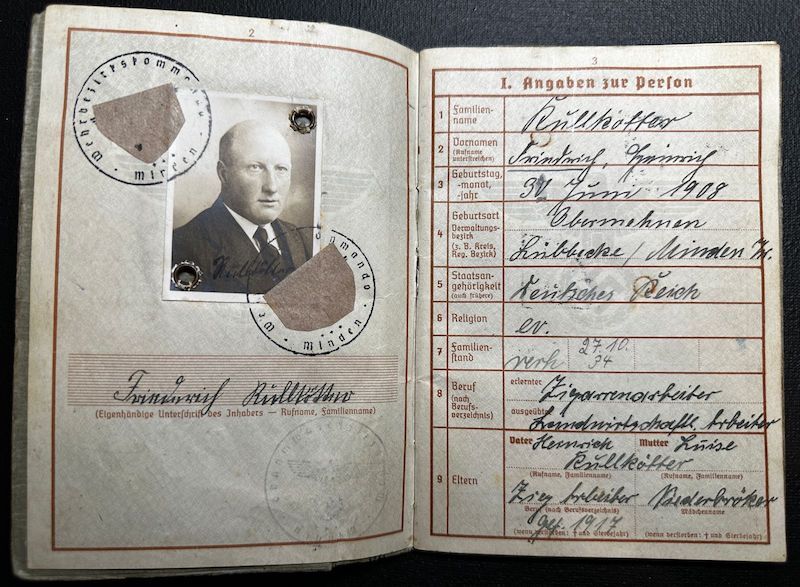 2
Wehrbezirkskommando
Minden
Wehrbezirkskommando
Minden
Friederich Küllkötter
(Eigenhändige Unterschrift des Inhabers — Rufname, Familienname)
3
I. Angaben zur Person
1 Familien-
name
Küllkötter
2 Vornamen
(Rufname
unterstreichen)
Friedrich, Heinrich
3 Geburtstag,
-monat,
-jahr
Juni 1908
4 Geburtsort
Verwaltungs-
bezirk
(z. B. Kreis,
Reg. Bezirk)
Obermehnen
Lübbecke / Minden
5 Staatsan-
gehörigkeit
(auch frühere)
Deutsches Reich
6 Religion
ev.
7 Familien-
stand
verh
27.10.
34
8 Beruf
(nach
Berufs-
verzeichnis)
erlernter
Zigarrenarbeiter
ausgeübter
Landwirtschaftl. Arbeiter
9 Eltern
Vater Heinrich
Küllkötter
(Rufname, Familienname)
Zig Arbeiter
Beruf (nach Berufsverzeichnis)
gef. 1917
(wenn verstorben: † und Sterbejahr)
Mutter Luise
(Rufname, Familienname)
Niederbröker
Mädchenname
(wenn verstorben: † und Sterbejahr)